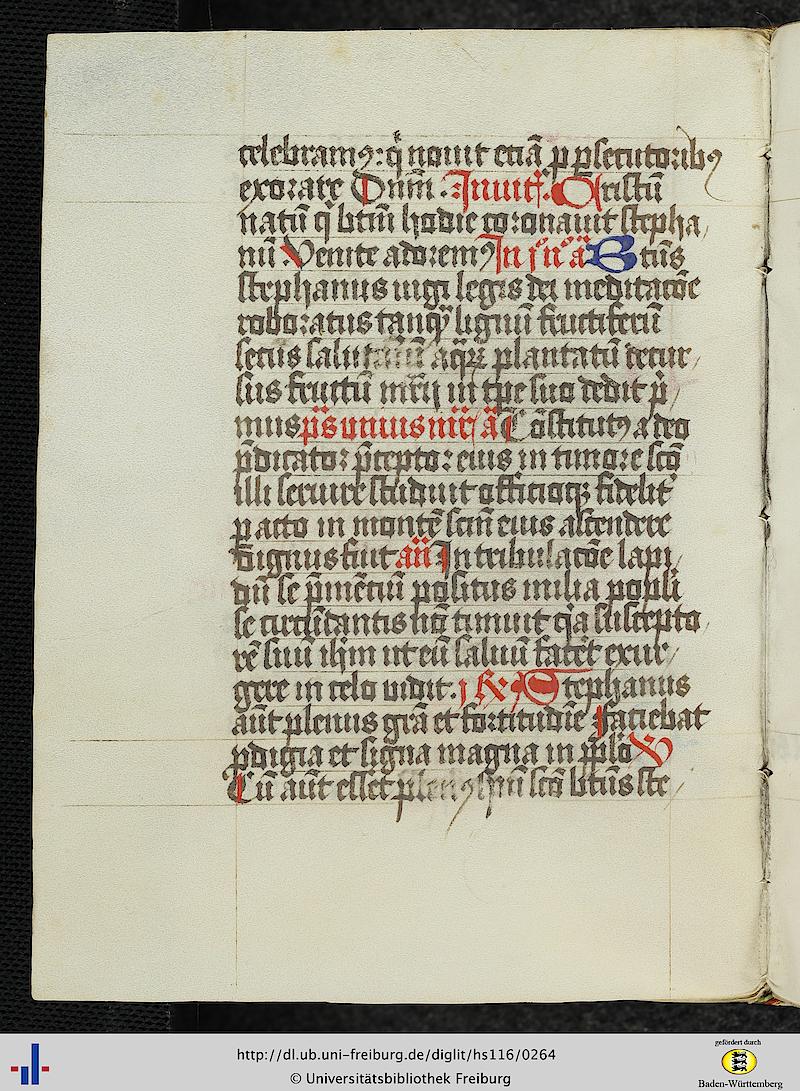 celebram⁹: q̇ nouit eciā ꝑ ꝑsecutorib⁹
exorare Dn̄m. Inuit̄. Cristū
natū q̇ btm̄ hodie coronauit stepha,
nū Venite adorem⁹ In j̊ n̊ a᷒ Btūs
stephanus iugi legis dei meditacōe
roboratus tanq̄ lignū fructiferū
secus salutariū aq̄ꝝ plantatū decur,
sus fructū mr̄ij in tꝑe suo dedit p̄
mus p̄s unius mr̄. a᷒ Cōstitut⁹ a deo
p̄dicator p̄ceptor eius in timore scō
illi seruire studuit officioqꝫ fidelit᷒
ꝑacto in montē scm̄ eius ascendere
dignus fuit an̄ In tribulacōe lapi,
dū se p̄mēciū positus milia popli
se circūdantis nō timuit q̇a suscepto,
rē suū ihm̄ ut eū saluū facēt exur,
gere in celo uidit. j ℞ Stephanus
aūt plenus grā et fortitudīe Faciebat
ꝓdigia et signa magna in pp̄lo V
Cū aūt esset plen⁹ spū scō btūs ste,
http://dl.ub.uni-freiburg.de/diglit/hs116/0264
© Universitätsbibliothek Freiburg
gefördert durch
Baden-Württemberg